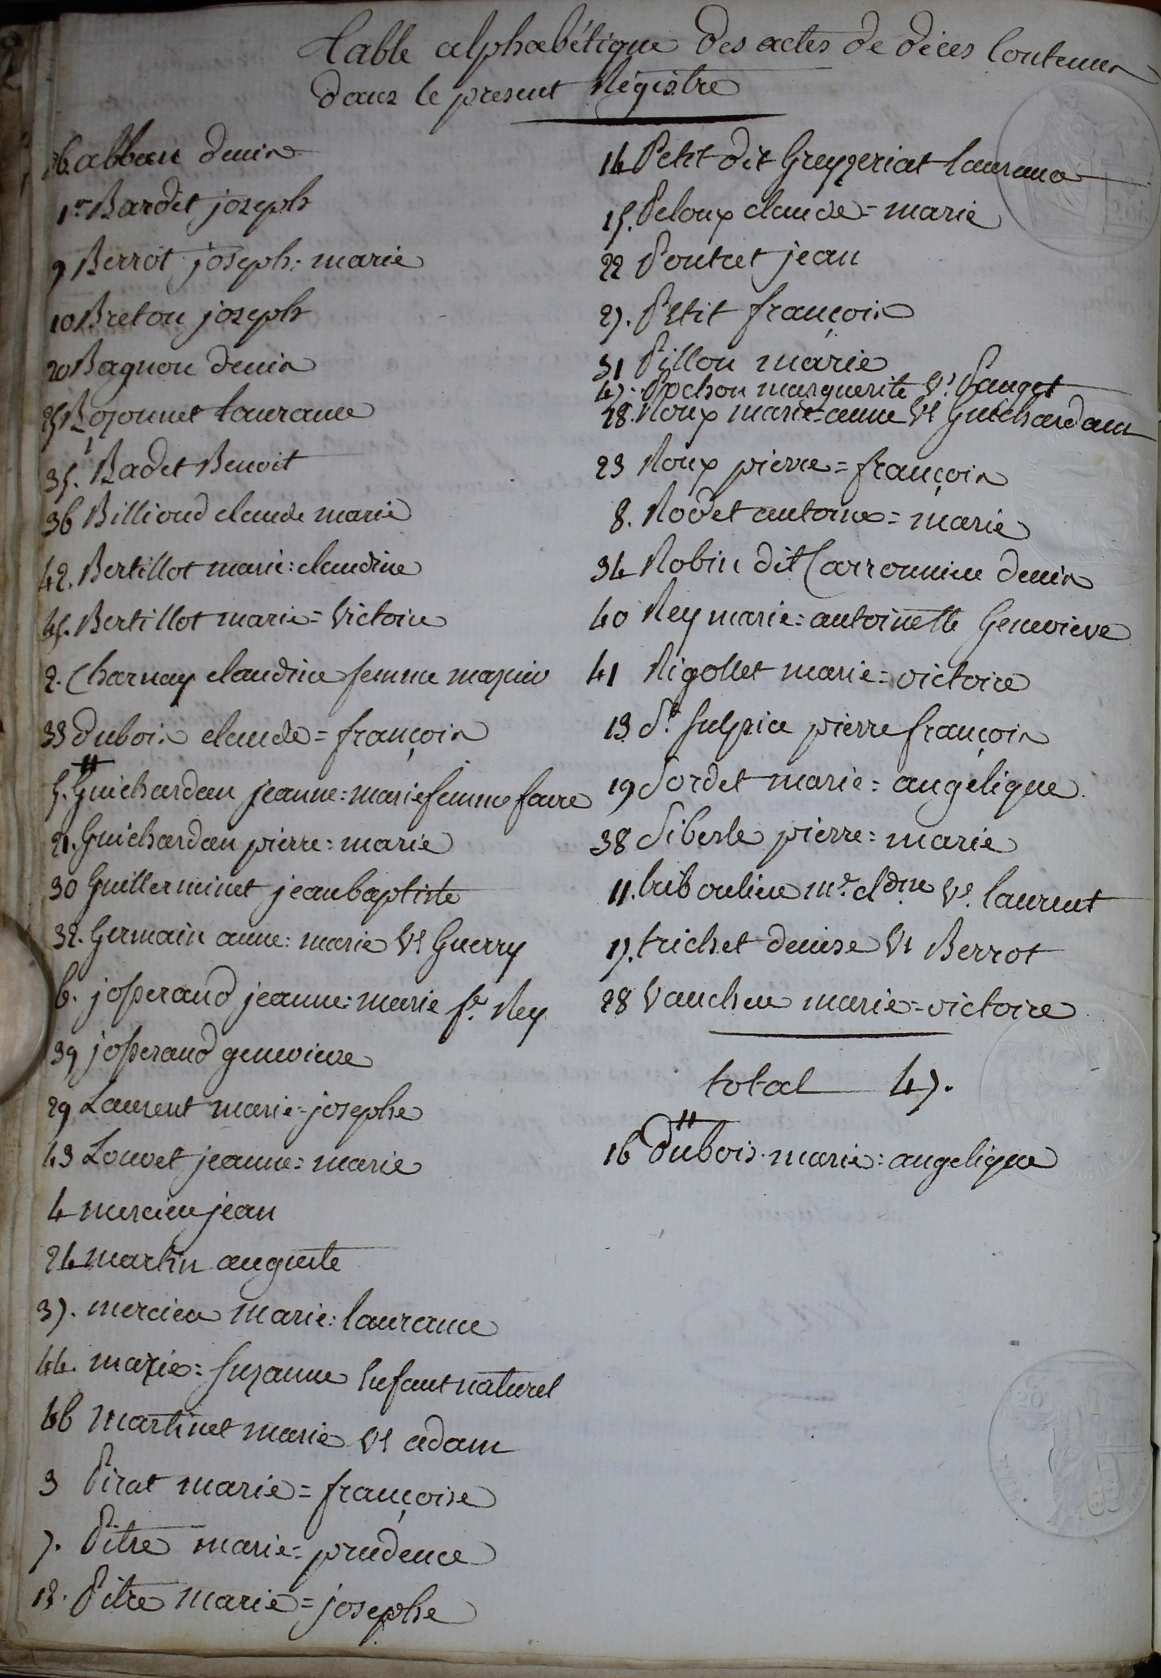 Table alphabétique des actes de décès Contenus
dans le present Régistre
26 abbau denis
1er Bardet joseph
9 Berrot joseph: marie
10 Breton joseph
20 Bagnon denis
25 Bozonnet laurance
35. Badet Benoit
36 Billioud claude marie
42. Bertillot marie: claudine
45. Bertillot marie = Victoire
2. Charnay claudine femme
33 dubois claude = françois
5. Guichardan jeanne: marie femme favre
21. Guichardan pierre: marie
30 Guillerminet jean baptiste
32. Germain anne: marie Ve Guerry
6. josserand jeanne: marie fe. Rey
39 josserand genevieve
29 Laurent marie = josephe
43 Louvet jeanne: marie
4 mercier jean
24 martin auguste
37. mercier marie: laurance
44. marie: suzanne Enfant naturel
46 martinet marie Ve adam
3 Pirat marie = françoise
7. Pitre marie = prudence
12. Pitre marie = josephe
14 Petit dit Greyzeriat laurance
15. Peloux claude = marie
22 Poutet jean
27. Petit françois
31 Pillon marie
47. Rochon marguerite Ve. Pauget
18. Roux marie = anne Ve Guichardam
23 Roux pierre = françois
8. Rodet antoine = marie
34 Robin dit Carronnier denis
40 Rey marie: antoinette Genevieve
41 Rigollet marie = victoire
13 St. sulpice pierre françois
19 Sordet marie = angélique
38 Siberle pierre: marie
11. triboulier me. cldine Ve. laurent
17. trichet denise Ve Berrot
28 Vaucher marie = victoire
total 47.
16 dubois marie: angelique